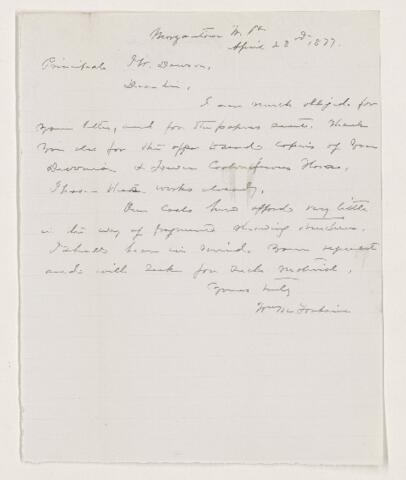 Morgantown W. Va
April 23d, 1877.
Principal J W. Dawson,
Dear Sir,
I am much obliged for
your letter, and for the papers sent. Thank
you also for the offer to send copies of your
Devonian & Lower Carboniferous Floras.
I have these works already.
Our coals here afford very little
in the way of fragments showing structure.
I shall bear in mind your request
and will seek for such material.
Yours truly
Wm M Fontaine